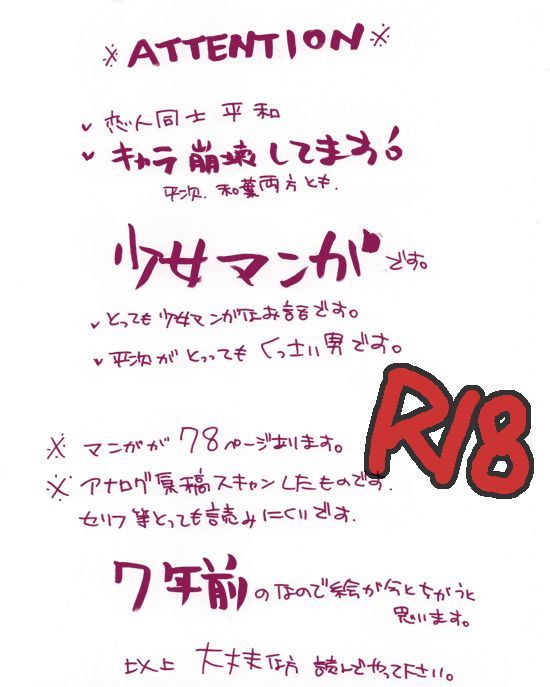 ※ATTENTION※
✓ 恋人同士 平和
✓ キャラ崩壊してます!
平次、和葉両方とも.
少女マンガです。
✓ とっても少女マンガなお話です。
✓ 平次がとってもくっさい男です。
R18
※ マンガが78ページあります。
※ アナログ原稿スキャンしたものです.
セリフ等とっても読みにくいです.
7年前のなので絵が今とちがうと
思います。
以上 大丈夫な方 読んでやって下さい。